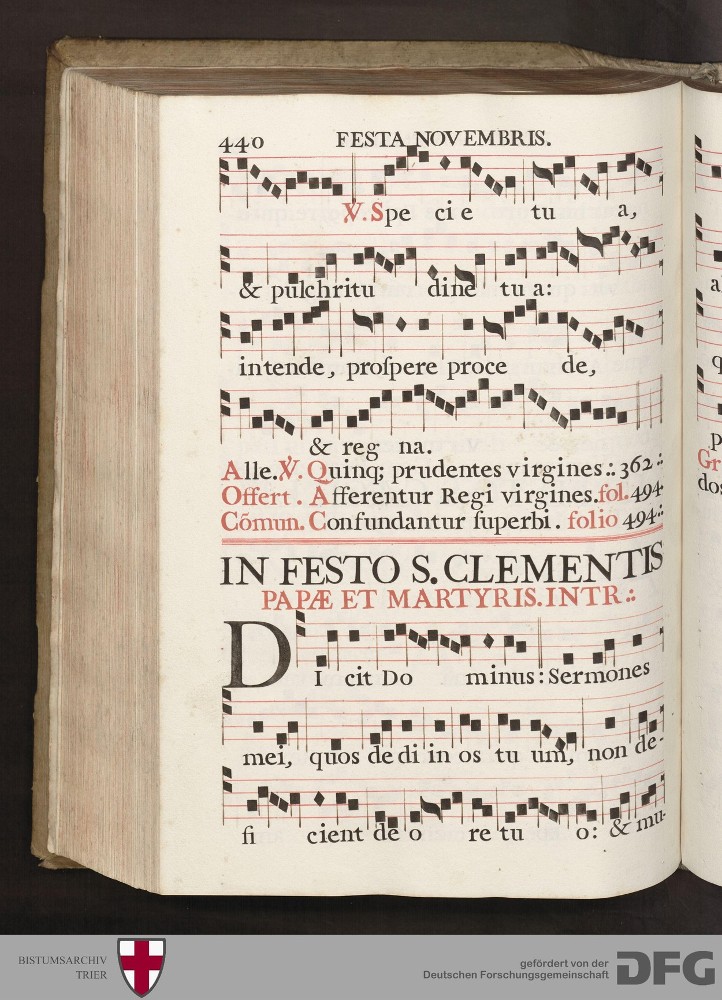 440 FESTA NOVEMBRIS.
℣. Spe ci e tu a,
& pulchritu dine tu a:
intende, proſpere proce de,
& reg na.
Alle. ℣. Quinq; prudentes virgines.: 362.:
Offert. Afferentur Regi virgines. fol. 494.
Cõmun. Confundantur ſuperbi. folio 494.:
IN FESTO S. CLEMENTIS
PAPÆ ET MARTYRIS. INTR.:
DI cit Do minus: Sermones
mei, quos de di in os tu um, non de-
fi cient de o re tu o: & mu-
a
q
p
Gr
dos
BISTUMSARCHIV
TRIER
gefördert von der
Deutschen Forschungsgemeinschaft
DFG